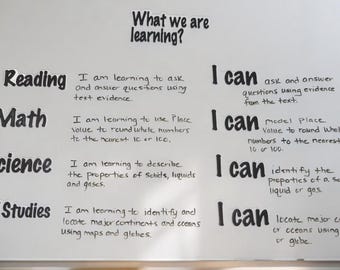 What we are
learning?
Reading
I am learning to ask
and answer questions using
text evidence.
I can ask and answer
questions using evidence
from the text.
Math
I am learning to use Place
Value to round whole numbers
to the nearest 10 or 100.
I can model Place
Value to round whol
numbers to the neares
10 or 100.
cience
I am learning to describe
the properties of solids, liquids
and gases.
I can identify the
properties of a so
liquid or gas.
Studies
I am learning to identify and
locate major continents and oceans
using maps and globes.
I can locate major co
or oceans using
or globe.